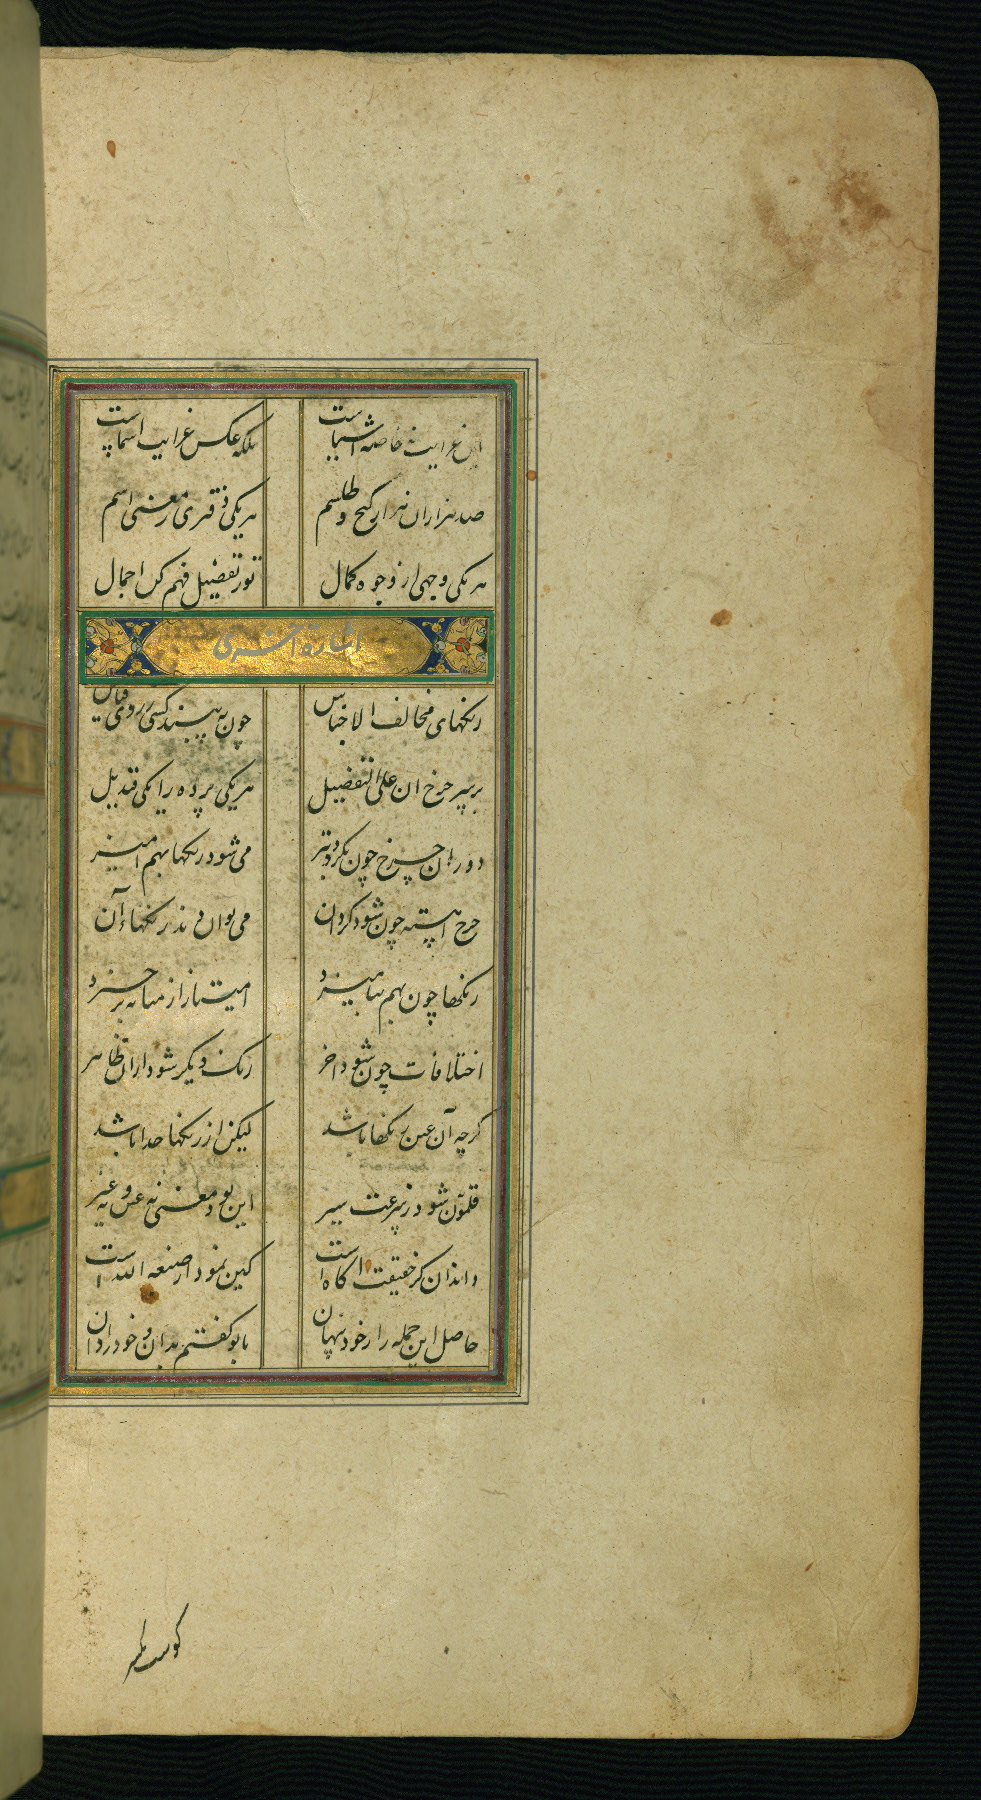 این غرایب خاصه اشیاست بلکه عکس غرایب اسماست
صد هزاران هزار گنج و طلسم هر یکی دفتری ز معنی اسم
هر یکی وجهی از وجوه کمال تو ز تفصیل فهم کن اجمال
اشارة اخری
رنکهای مخالف الاجناس چون به بیند کسی ز روی قیاس
بر سپر چرخ ان علی التفصیل هر یکی پرده را یکی قندیل
دوران چرخ چون بکرد تیز می شود رنکها بهم امیز
چرخ اهسته چون شود کردان می توان دید رنکهاء آن
رنکها چون بهم بیامیزد امتیاز از میانه بر خیزد
اختلافات چون شود اخر رنک دیکر شود از ان ظاهر
کرچه آن عین رنکها باشد لیکن از رنکها جدا باشد
قلمون شود ز سرعت سیر این بود معنی نه عین و نه غیر
داند ان کز حقیقت اکاه است کین نمودار صنعه الله است
حاصل این جمله را ز خود پنهان با تو کفتم بدان و خود را دان